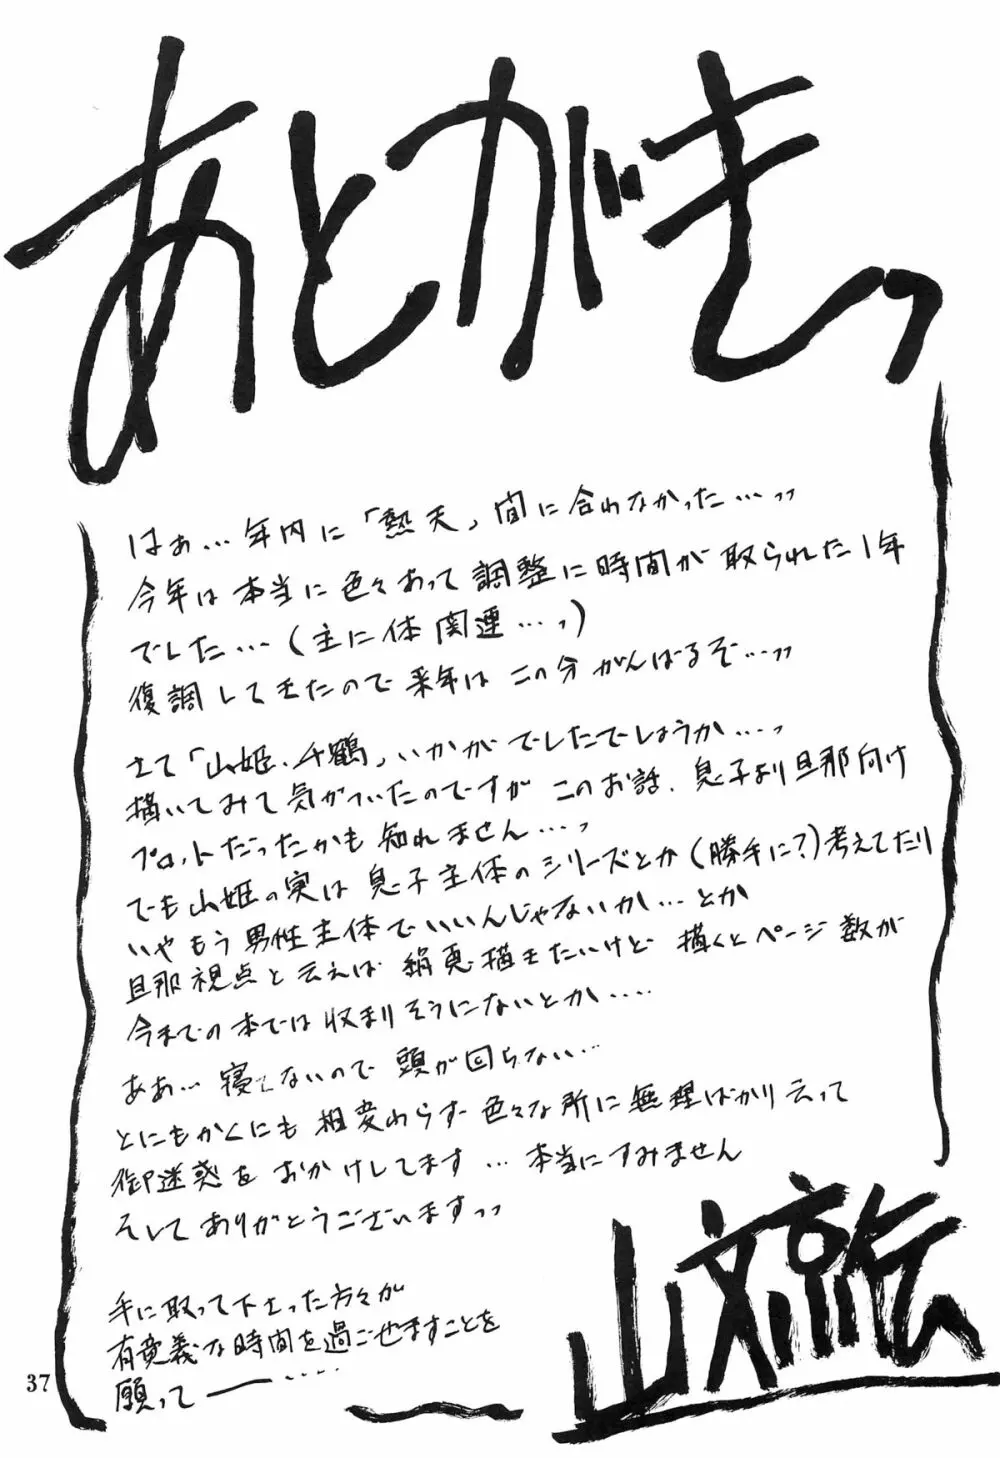 あとがきっ
はぁ…年内に「熱天」間に合わなかった…ッッ
今年は本当に色々あって調整に時間が取られた1年
でした…(主に体関連…ッ)
復調してきたので来年はこの分がんばるぞ…ッッ
さて「山姫、千鶴」いかがでしたでしょうか…ッ
描いてみて気がついたのですがこのお話、息子より旦那向け
プロットだったかも知れません…ッ
でも山姫の実は息子主体のシリーズとか(勝手に?)考えてたり
いやもう男性主体でいいんじゃないか…とか
旦那視点と云えば絹恵描きたいけど描くとページ数が
今までの本では収まりそうにないとか…‥
ああ…寝てないので頭が回らない…
とにもかくにも相変わらず色々な所に無理ばかり云って
御迷惑をおかけしてます…本当にすみません
そしてありがとうございますッッ
手に取って下さった方々が
有意義な時間を過ごせますことを
願って――…‥
山文京伝
37